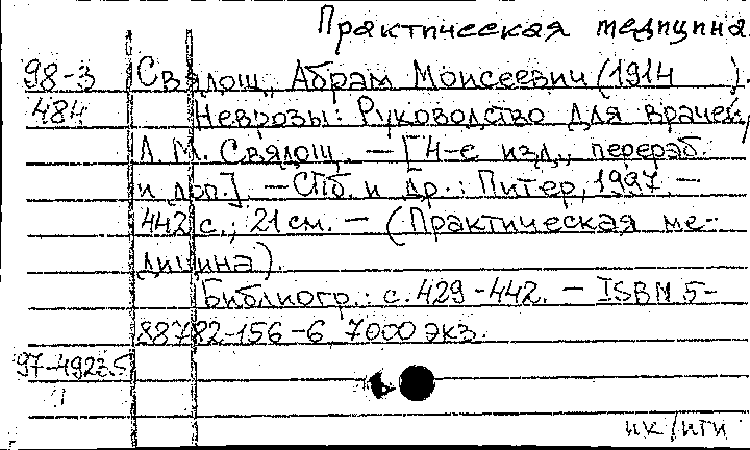 Практическая медицина.
98-3 Свядощ, Абрам Моисеевич (1914 ).
484 Неврозы: Руководство для врачей,
А. М. Свядощ. — [4-е изд., перераб.
и доп.]. — СПб. и др.: Питер, 1997. —
442 с.; 21 см. — (Практическая ме-
дицина).
Библиогр.: с. 429-442. — ISBN 5-
88782-156-6, 7000 экз.
97-49235
нк/нги